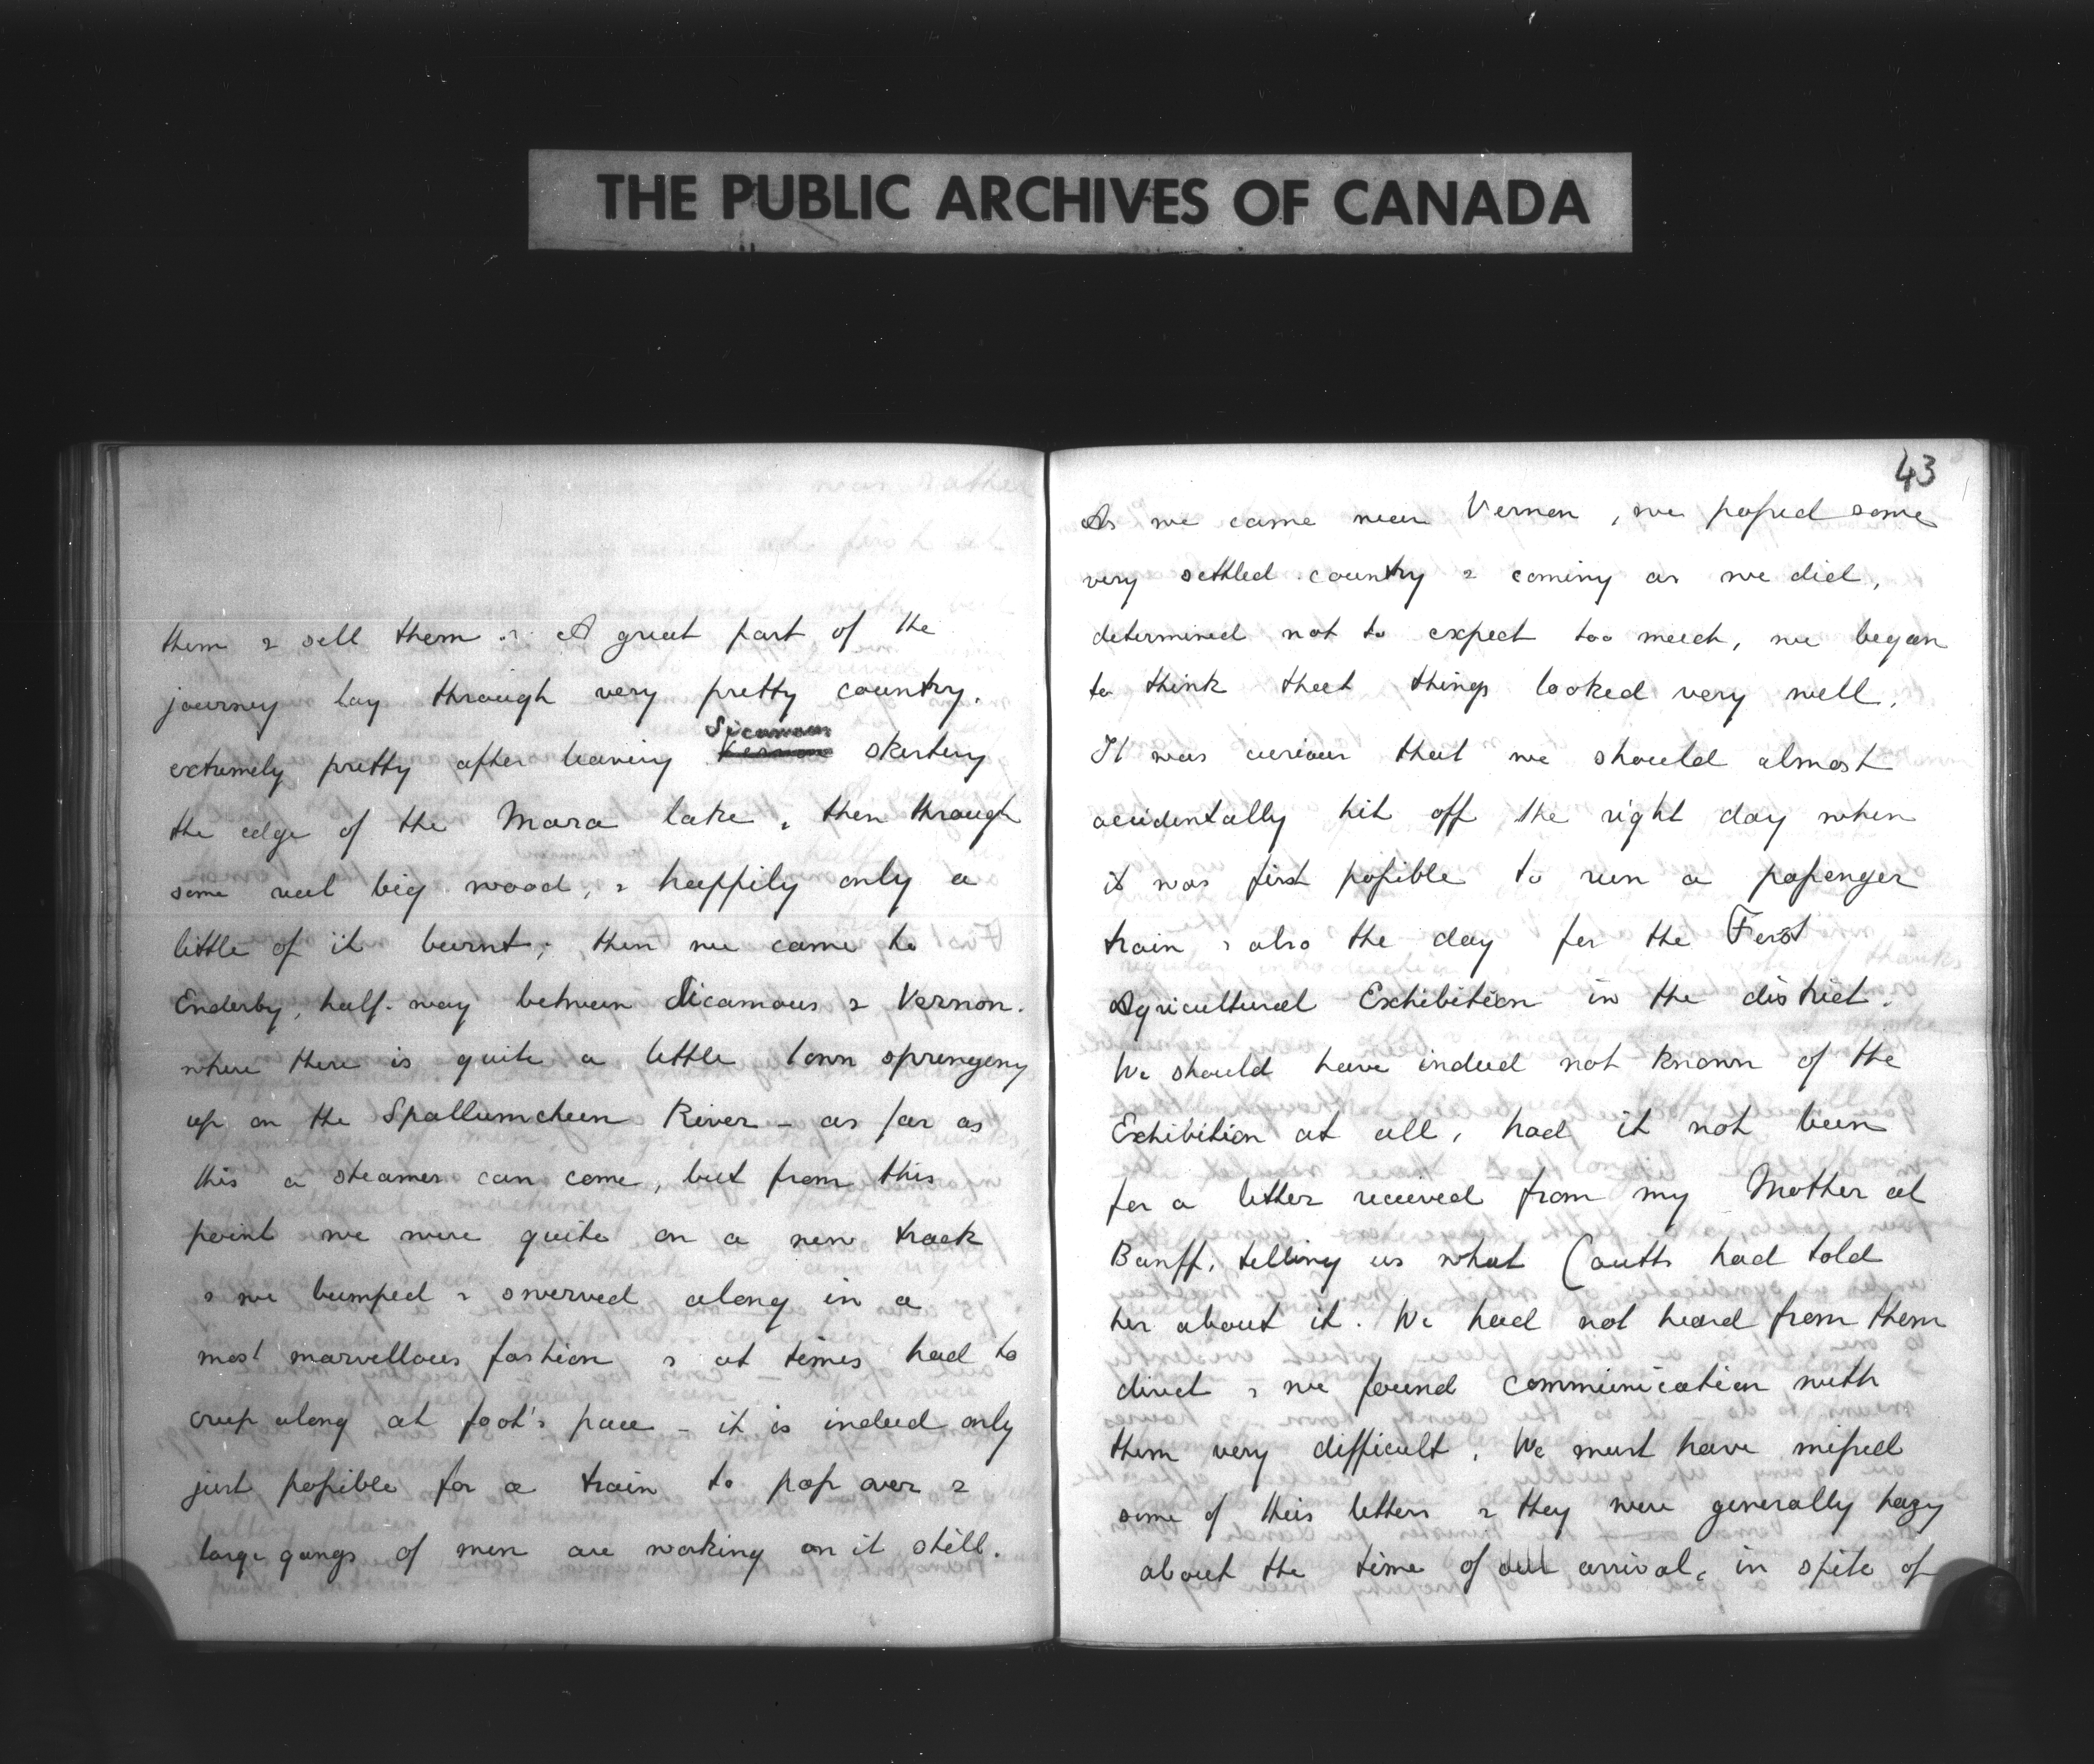 THE PUBLIC ARCHIVES OF CANADA
them & sell them. A great part of the
journey lay through very pretty country.
Sicamous
extremely pretty after leaving Vernon skirting
the edge of the Mara lake, then through
some real big wood, & happily only a
little of it burnt; then we came to
Enderby, half-way between Sicamous & Vernon.
where there is quite a little town springing
up on the Spallumcheen River - as far as
this a steamer can come, but from this
point we were quite on a new track
& we bumped & swerved along in a
most marvellous fashion & at times had to
creep along at foot's pace - it is indeed only
just possible for a train to pass over &
large gangs of men are working on it still.
43
As we came near Vernon, we passed some
very settled country & coming as we did,
determined not to expect too much, we began
to think that things looked very well.
It was curious that we should almost
accidentally hit off the right day when
it was first possible to run a passenger
train & also the day for the First
Agricultural Exhibition in the district.
We should have indeed not known of the
Exhibition at all, had it not been
for a letter received from my Mother at
Banff, telling us what Coutts had told
her about it. We had not heard from them
direct & we found communication with
them very difficult. We must have missed
some of their letters & they were generally hazy
about the time of our arrival, in spite of